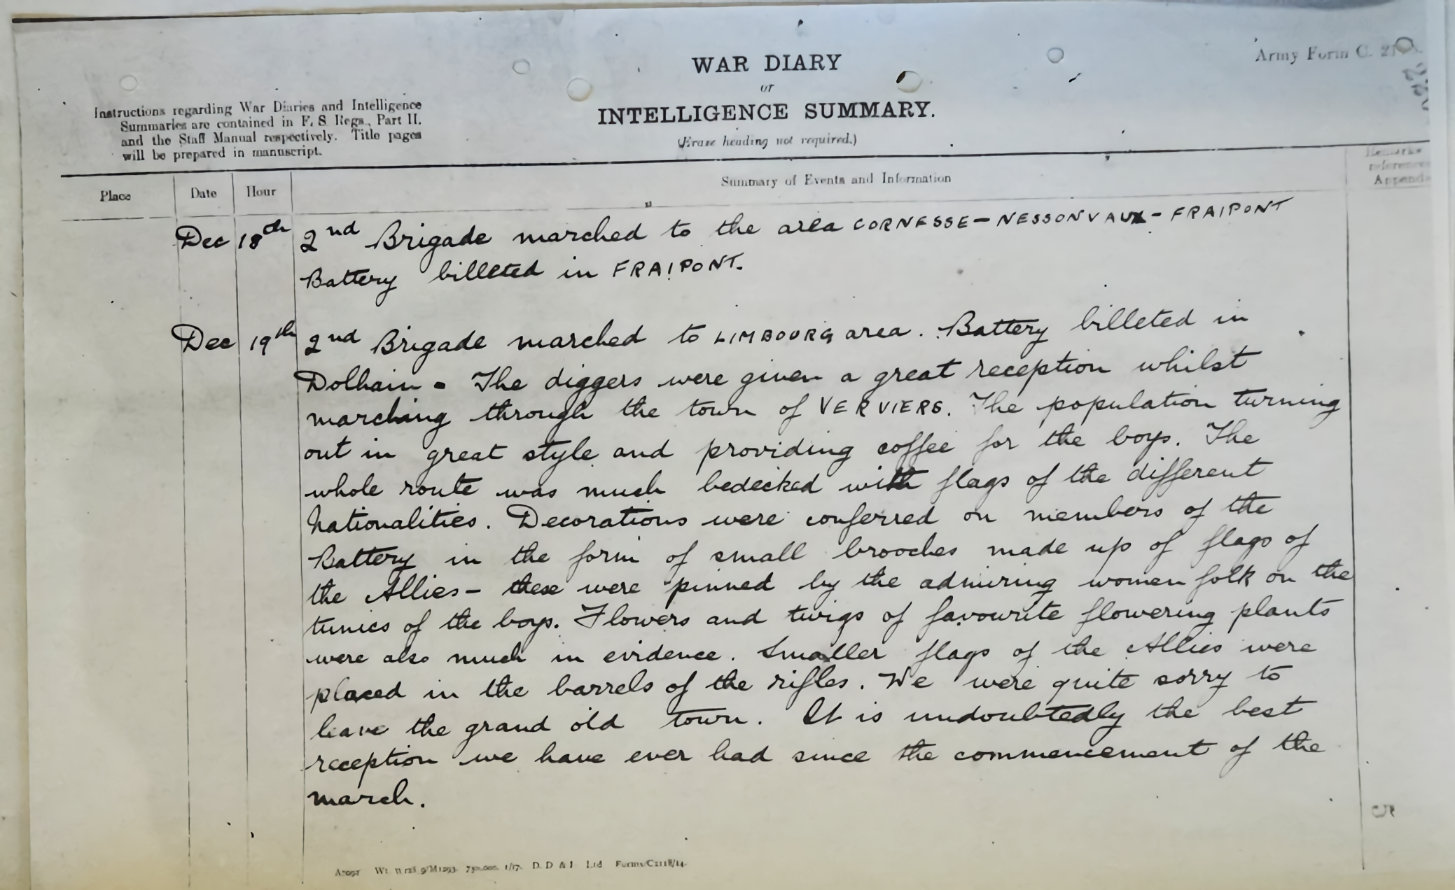 WAR DIARY
or
INTELLIGENCE SUMMARY.
(Erase heading not required.)
Army Form C.
Instructions regarding War Diaries and Intelligence
Summaries are contained in F. S. Regs., Part II.
and the Staff Manual respectively. Title pages
will be prepared in manuscript.
Place Date Hour Summary of Events and Information
Remarks
references
Dec 18th 2nd Brigade marched to the area CORNESSE - NESSONVAUX - FRAIPONT
Battery billeted in FRAIPONT.
Dec 19th 2nd Brigade marched to LIMBOURG area. Battery billeted in
Dolhain - The diggers were given a great reception whilst
marching through the town of VERVIERS. The population turning
out in great style and providing coffee for the boys. The
whole route was much bedecked with flags of the different
Nationalities. Decorations were conferred on members of the
Battery in the form of small brooches made up of flags of
the Allies - these were pinned by the admiring women folk on the
tunics of the boys. Flowers and twigs of favourite flowering plants
were also much in evidence. Smaller flags of the Allies were
placed in the barrels of the rifles. We were quite sorry to
leave the grand old town. It is undoubtedly the best
reception we have ever had since the commencement of the
march.
1/17. D. D & L Ltd Forms/C2118/14.